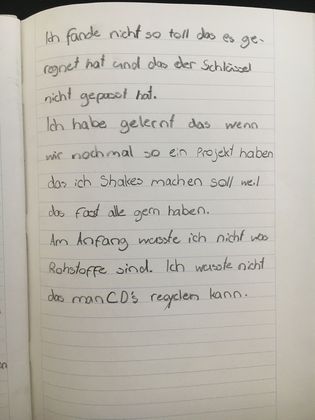 Ich fande nicht so toll das es ge-
regnet hat und das der Schlüssel
nicht gepasst hat.
Ich habe gelernt das wenn
wir nochmal so ein Projekt haben
das ich Shakes machen soll weil
das fast alle gern haben.
Am Anfang wusste ich nicht was
Rohstoffe sind. Ich wusste nicht
das man CD's recyclen kann.